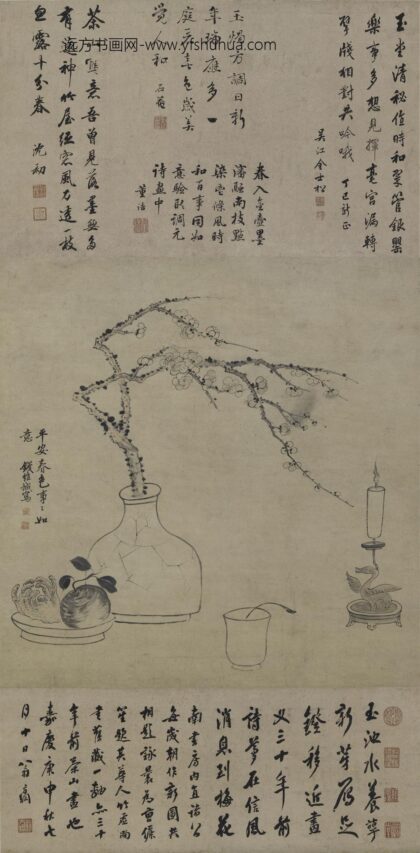 玉堂清秘值時和翠管銀罌
樂事多想見揮毫宮漏轉
牋相對共吟哦 丁巳新正
吳江金士松
玉燭方調日新
年瑞應多一
庭春色盛美
覺人和 石菴
春入金壺墨
瀋南枝點
染條風時
和百事同如
意驗取調元
詩畫中 董誥
茶意吾曾見落墨無多
有遠神竹屋紙窗風力透一枝
包露十分春 沈初
平安春色事〻如
意 錢維城寫
玉池水養萍
新芽
鐙移近畫
义三十年前
詩夢在信風
消息到梅花
南書房內直諸公
每歲朝作新圖共
相題詠裝為條
題其尊人竹虛南
書舊藏一軸亦三十
年前茶山畫也
嘉慶庚申秋七
月十日翁方綱
远方书画网-www.yfshuhua.com